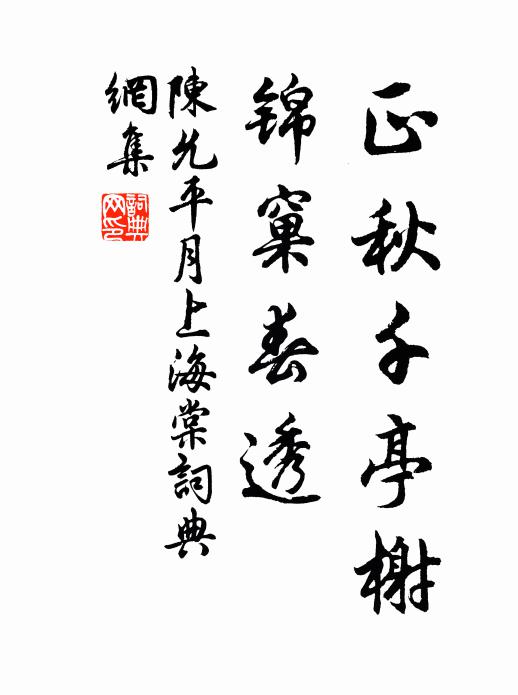 正秋千亭榭
锦窠春透
陳允平月上海棠詞典
網集
詞典网印